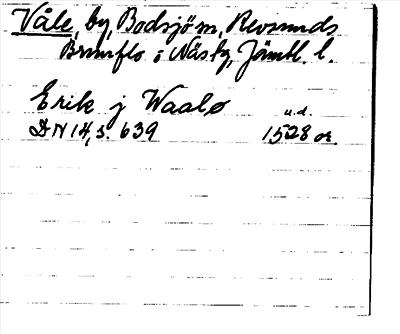 Våle, by, Bodsjö sn, Revsunds
Brunflo o Näs tg, Jämtl. l.
Erik j Waalø
u.d.
DN 14, s. 639 1528 or.